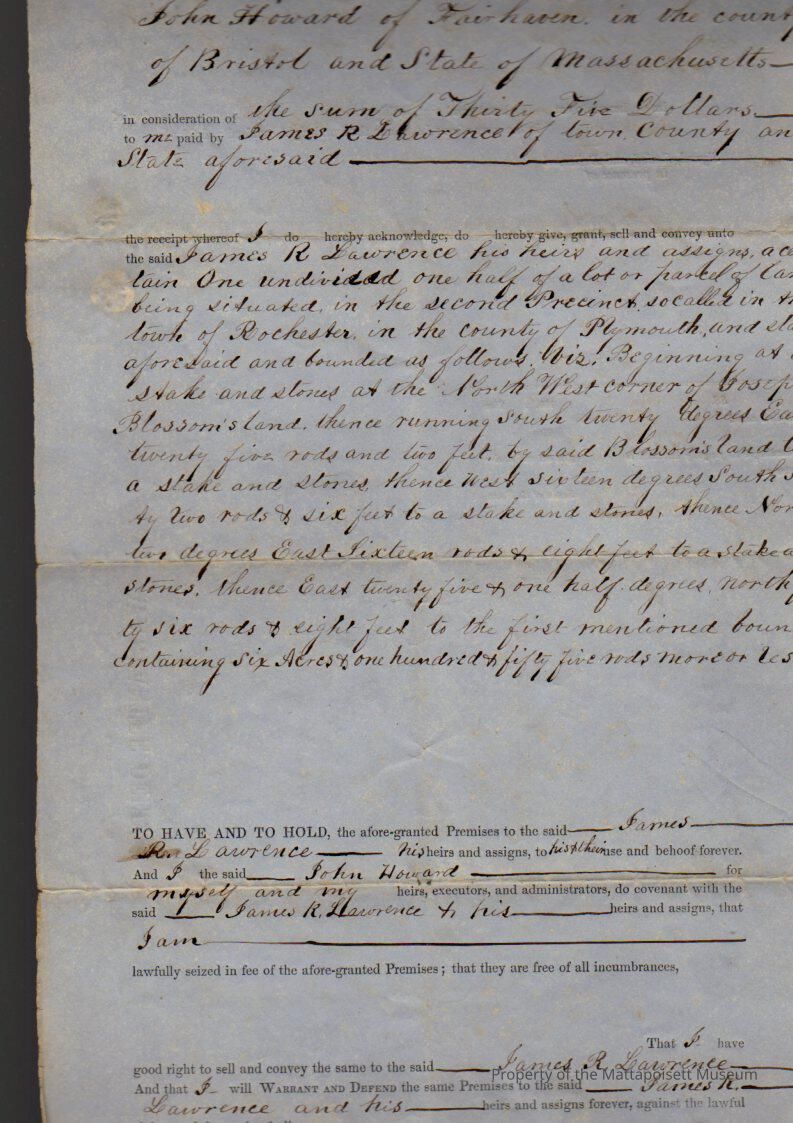 John Howard of Fairhaven. in the count
of Bristol and State of Massachusetts
in consideration of the sum of Thirty Five Dollars
to me paid by James R Lawrence of town, County an
State aforesaid
the receipt whereof I do hereby acknowledge, do hereby give, grant, sell and convey unto
the said James R Lawrence his heirs and assigns, a ce
tain One undivided one half of a lot or parcel of lan
being situated, in the second Precinct, socalled in th
town of Rochester, in the county of Plymouth, and sta
aforesaid and bounded as follows. Viz. Beginning at
stake and stones at the North West corner of Josep
Blossom's land. thence running South twenty degrees Ea
twenty five rods and two feet, by said Blossom's land t
a stake and stones, thence West sixteen degrees South
ty two rods & six feet to a stake and stones, thence Nor
two degrees East Sixteen rods & eight feet to a stake a
stones, thence East twenty five & one half degrees, north
ty six rods & eight feet to the first mentioned boun
containing Six Acres & one hundred & fifty five rods more or les
TO HAVE AND TO HOLD, the afore-granted Premises to the said James
R. Lawrence his heirs and assigns, to his & their use and behoof forever.
And I the said John Howard for
myself and my heirs, executors, and administrators, do covenant with the
said James R. Lawrence & his heirs and assigns, that
I am
lawfully seized in fee of the afore-granted Premises; that they are free of all incumbrances,
That I have
good right to sell and convey the same to the said James R Lawrence
Property of the Mattapoisett Museum
And that I will WARRANT AND DEFEND the same Premises to the said James R.
Lawrence and his heirs and assigns forever, against the lawful